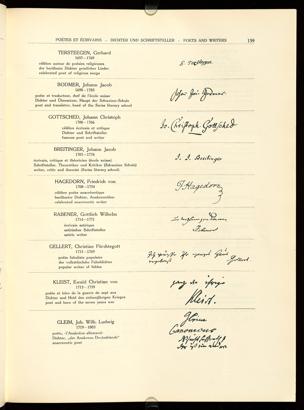 POÈTES ET ÉCRIVAINS - DICHTER UND SCHRIFTSTELLER - POETS AND WRITERS 159
TERSTEEGEN, Gerhard
1697 - 1769
célèbre auteur de poésies religieuses
der berühmte Dichter geistlicher Lieder
celebrated poet of religious songs
BODMER, Johann Jacob
1698 - 1783
poète et traducteur, chef de l'école suisse
Dichter und Übersetzer, Haupt der Schweizer-Schule
poet and translator, head of the Swiss literary school
GOTTSCHED, Johann Christoph
1700 - 1766
célèbre écrivain et critique
Dichter und Schriftsteller
famous poet and writer
Jo. Christoph Gottsched
BREITINGER, Johann Jacob
1701 - 1776
écrivain, critique et théoricien (école suisse)
Schriftsteller, Theoretiker und Kritiker (Schweizer Schule)
writer, critic and theorist (Swiss literary school)
J. J. Breitinger
HAGEDORN, Friedrich von
1708 - 1754
célèbre poète anacréontique
berühmter Dichter, Anakreontiker
celebrated anacreontic writer
F. Hagedorn
RABENER, Gottlieb Wilhelm
1714 - 1771
écrivain satirique
satirischer Schriftsteller
satiric writer
Rabener
GELLERT, Christian Fürchtegott
1715 - 1769
poète fabuliste populaire
der volkstümliche Fabeldichter
popular writer of fables
Gellert
KLEIST, Ewald Christian von
1715 - 1759
poète et héros de la guerre de sept ans
Dichter und Held des siebenjährigen Krieges
poet and hero of the seven years war
Kleist.
GLEIM, Joh. Wilh. Ludwig
1719 - 1803
poète, «l'Anakréon allemand»
Dichter, „der Anakreon Deutschlands"
anacreontic poet
Gleim